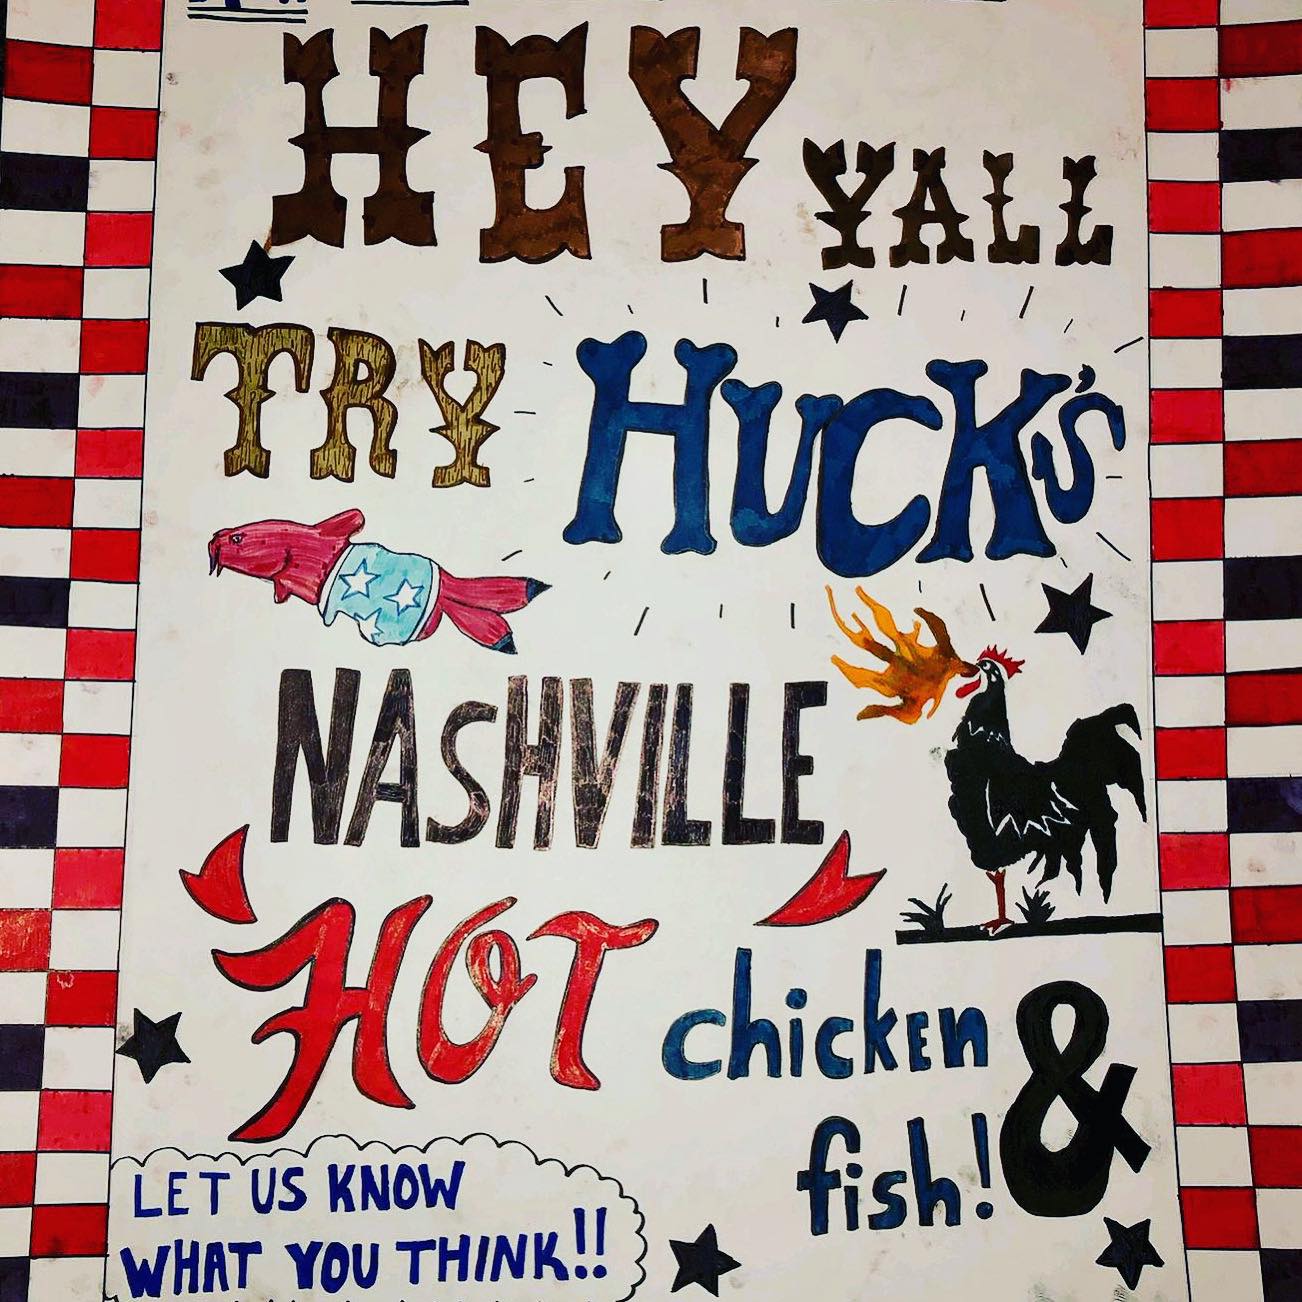 HEY YALL
TRY HUCK'S
NASHVILLE
HOT chicken &
fish!
LET US KNOW
WHAT YOU THINK!!